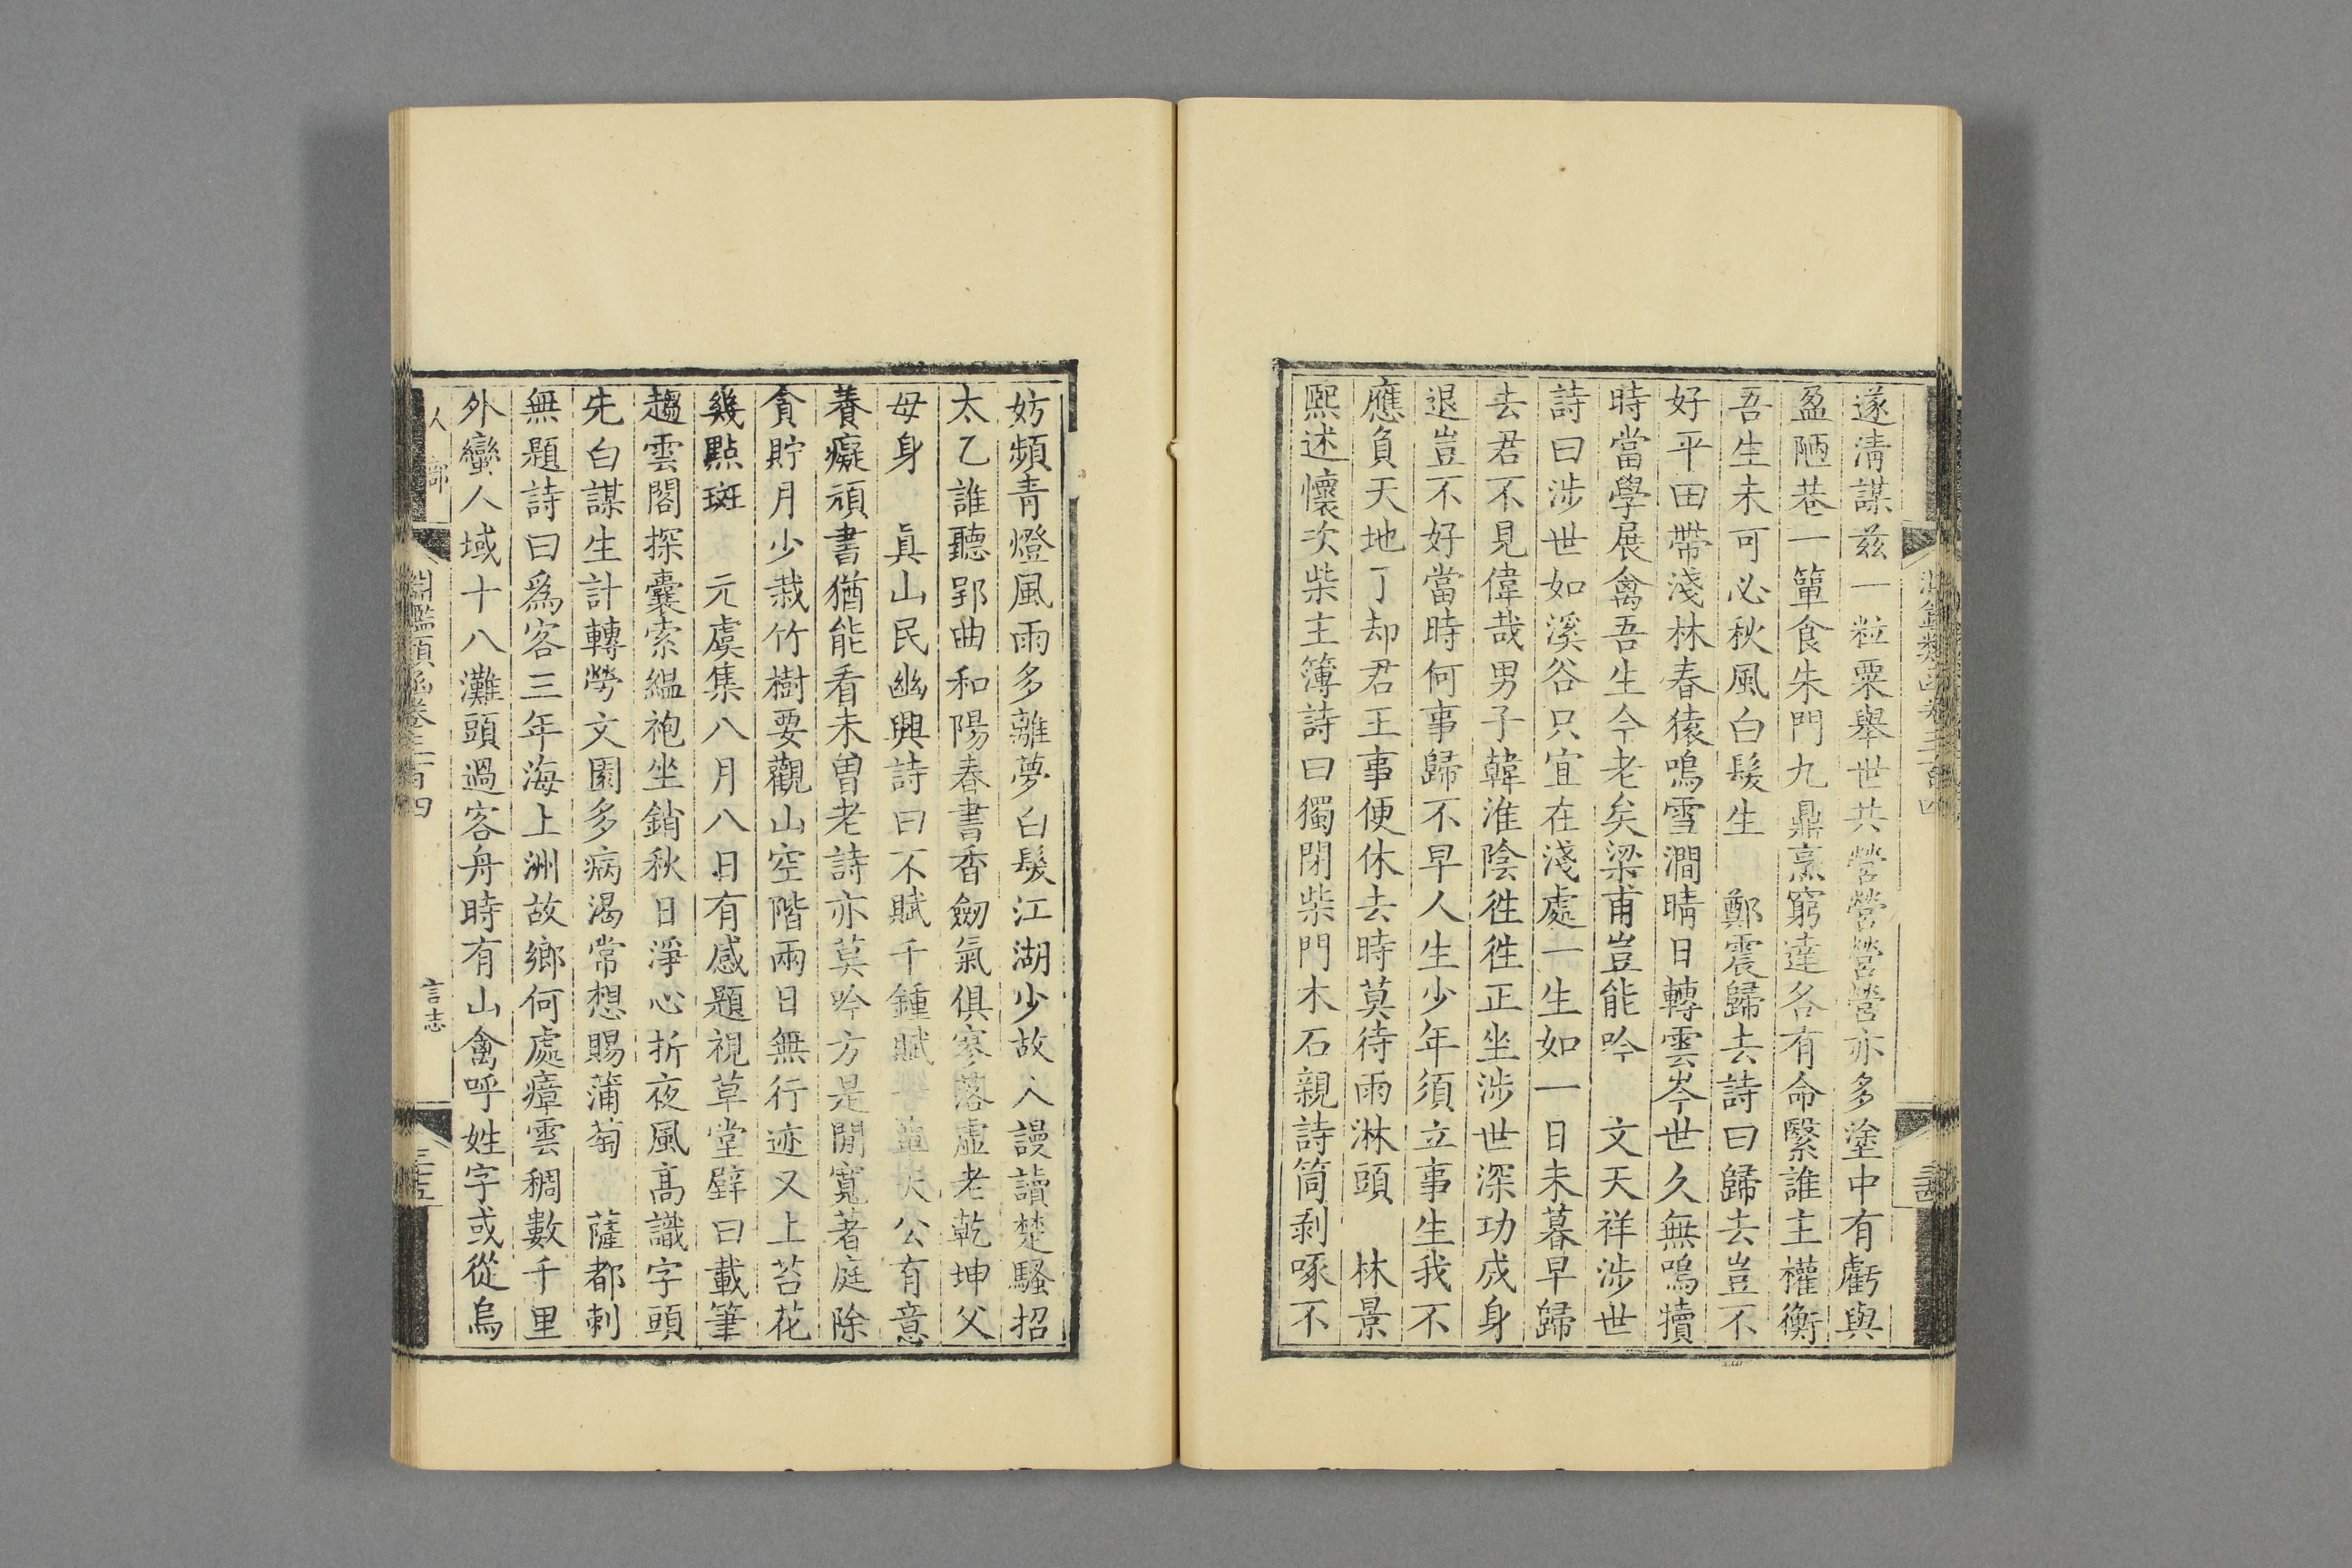 遂清謀兹一粒粟舉世共營營營營亦多塗中有虧與
盈陋巷一簞食朱門九鼎烹窮達各有命繄誰主權衡
吾生未可必秋風白髮生 鄭震歸去詩曰歸去豈不
好平田帶淺林春猿鳴雪澗晴日轉雲岑世久無鳴犢
時當學展禽吾生今老矣梁甫豈能吟 文天祥涉世
詩曰涉世如溪谷只宜在淺處一生如一日未暮早歸
去君不見偉哉男子韓淮陰徃徃正坐涉世深功成身
退豈不好當時何事歸不早人生少年須立事生我不
應負天地了却君王事便休去時莫待雨淋頭 林景
熙述懷次柴主簿詩曰獨閉柴門木石親詩筒剥啄不
妨頻青燈風雨多離夢白髮江湖少故人謾讀楚騷招
太乙誰聽郢曲和陽春書香劒氣俱寥落虛老乾坤父
母身 眞山民幽興詩曰不賦千鍾賦公有意
養癡頑書猶能看未曽老詩亦莫吟方是閒寬著庭除
貪貯月少栽竹樹要觀山空階兩日無行迹又上苔花
幾點斑 元虞集八月八日有感題視草堂壁曰載筆
趨雲閣探囊索緼袍坐銷秋日淨心折夜風高識字頭
先白謀生計轉勞文園多病渴常想賜蒲萄 薩都刺
無題詩曰爲客三年海上洲故鄉何處瘴雲稠數千里
外蠻人域十八灘頭過客舟時有山禽呼姓字或從烏
人部 淵鑑類函卷三百四 言志 三五